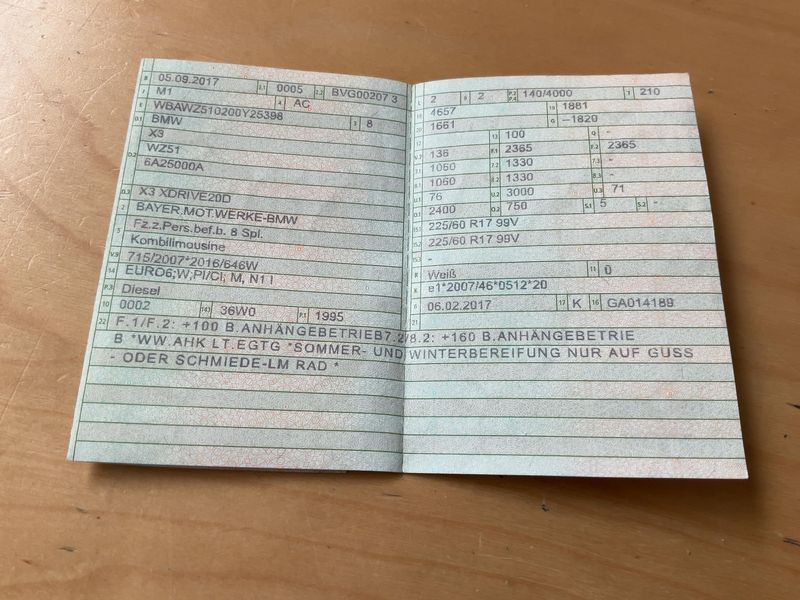 B 05.09.2017 2.1 0005 2.2 BVG00207 3
J M1 4 AC
E WBAWZ510200Y25398 3 8
D.1 BMW
X3
D.2 WZ51
6A25000A
D.3 X3 XDRIVE20D
2 BAYER.MOT.WERKE-BMW
5 Fz.z.Pers.bef.b. 8 Spl.
Kombilimousine
V.9 715/2007*2016/646W
14 EURO6;W,PI/CI; M, N1 I
P.3 Diesel
10 0002 14.1 36W0 P.1 1995
22 F.1/F.2: +100 B.ANHÄNGEBETRIEB7.2/8.2: +160 B.ANHÄNGEBETRIE
B *WW.AHK LT.EGTG *SOMMER- UND WINTERBEREIFUNG NUR AUF GUSS
- ODER SCHMIEDE-LM RAD *
L 2 9 2 P.2 P.4 140/4000 T 210
18 4657 19 1881
20 1661 G —1820
12 13 100 Q -
V.7 136 F.1 2365 F.2 2365
7.1 1060 7.2 1330 7.3 -
8.1 1060 8.2 1330 8.3 -
U.1 76 U.2 3000 U.3 71
O.1 2400 O.2 750 S.1 5 S.2 -
15.1 225/60 R17 99V
15.2 225/60 R17 99V
15.3 -
R Weiß 11 0
K e1*2007/46*0512*20
6 06.02.2017 17 K 16 GA014189
21